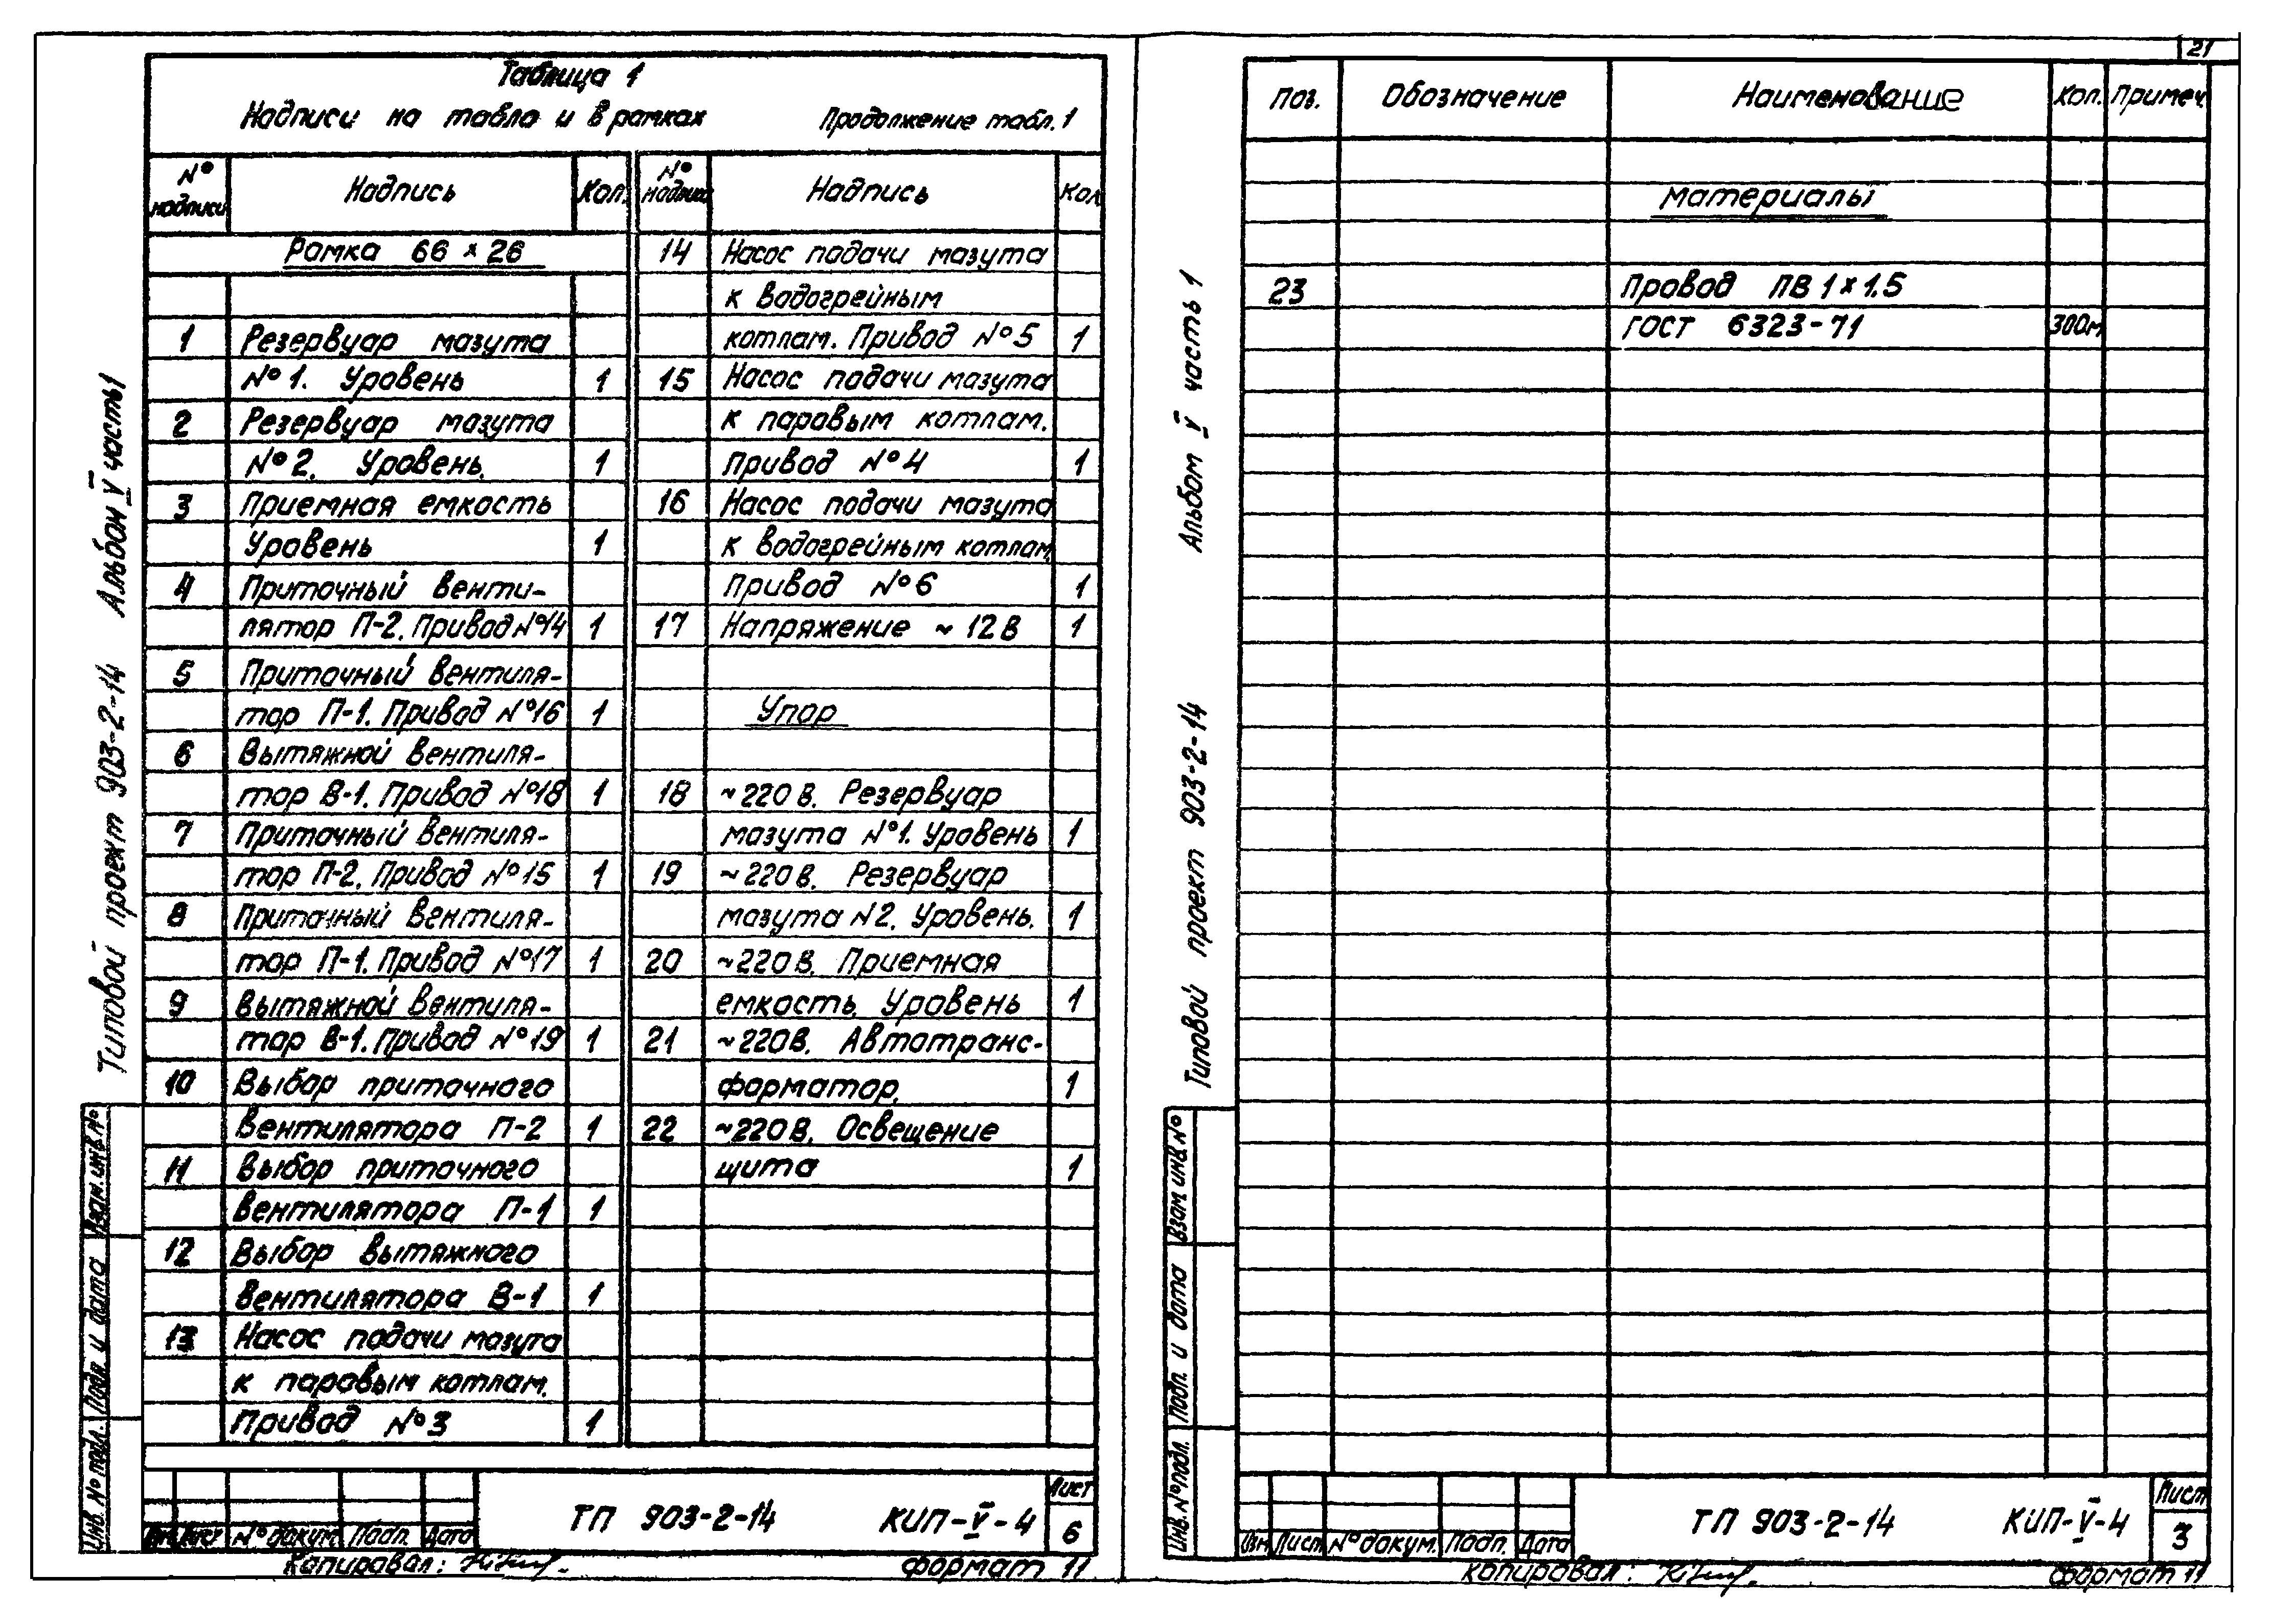 21
Таблица 1
Надписи на табло и в рамках
Продолжение табл. 1
№ надписи
Надпись
Кол.
Рамка 66 × 26
1 Резервуар мазута
№ 1. Уровень 1
2 Резервуар мазута
№ 2. Уровень. 1
3 Приемная емкость
Уровень 1
4 Приточный венти-
лятор П-2. Привод №14 1
5 Приточный вентиля-
тор П-1. Привод №16 1
6 Вытяжной вентиля-
тор В-1. Привод №18 1
7 Приточный вентиля-
тор П-2. Привод №15 1
8 Приточный вентиля-
тор П-1. Привод №17 1
9 Вытяжной вентиля-
тор В-1. Привод №19 1
10 Выбор приточного
вентилятора П-2 1
11 Выбор приточного
вентилятора П-1 1
12 Выбор вытяжного
вентилятора В-1 1
13 Насос подачи мазута
к паровым котлам.
Привод №3 1
№ надписи
Надпись
Кол
14 Насос подачи мазута
к водогрейным
котлам. Привод №5 1
15 Насос подачи мазута
к паровым котлам.
Привод №4 1
16 Насос подачи мазута
к водогрейным котлам.
Привод №6 1
17 Напряжение ~ 12 В 1
Упор
18 ~220 В. Резервуар
мазута №1. Уровень 1
19 ~220 В. Резервуар
мазута N2. Уровень. 1
20 ~220 В. Приемная
емкость. Уровень 1
21 ~220 В. Автотранс-
форматор. 1
22 ~220 В. Освещение
щита 1
Типовой проект 903-2-14 Альбом V часть 1
Взам. инв. №
Подп. и дата
Инв. № подл.
Изм Лист № докум. Подп. Дата
ТП 903-2-14 КИП-V-4
Лист
6
Копировал:
Формат 11
Поз.
Обозначение
Наименование
Кол.
Примеч.
Материалы
23 Провод ПВ 1×1.5
ГОСТ 6323-71 300м
Типовой проект 903-2-14 Альбом V часть 1
Взам инв. №
Подп. и дата
Инв. № подл.
Изм Лист № докум. Подп. Дата
ТП 903-2-14 КИП-V-4
Лист
3
Копировал:
Формат 11